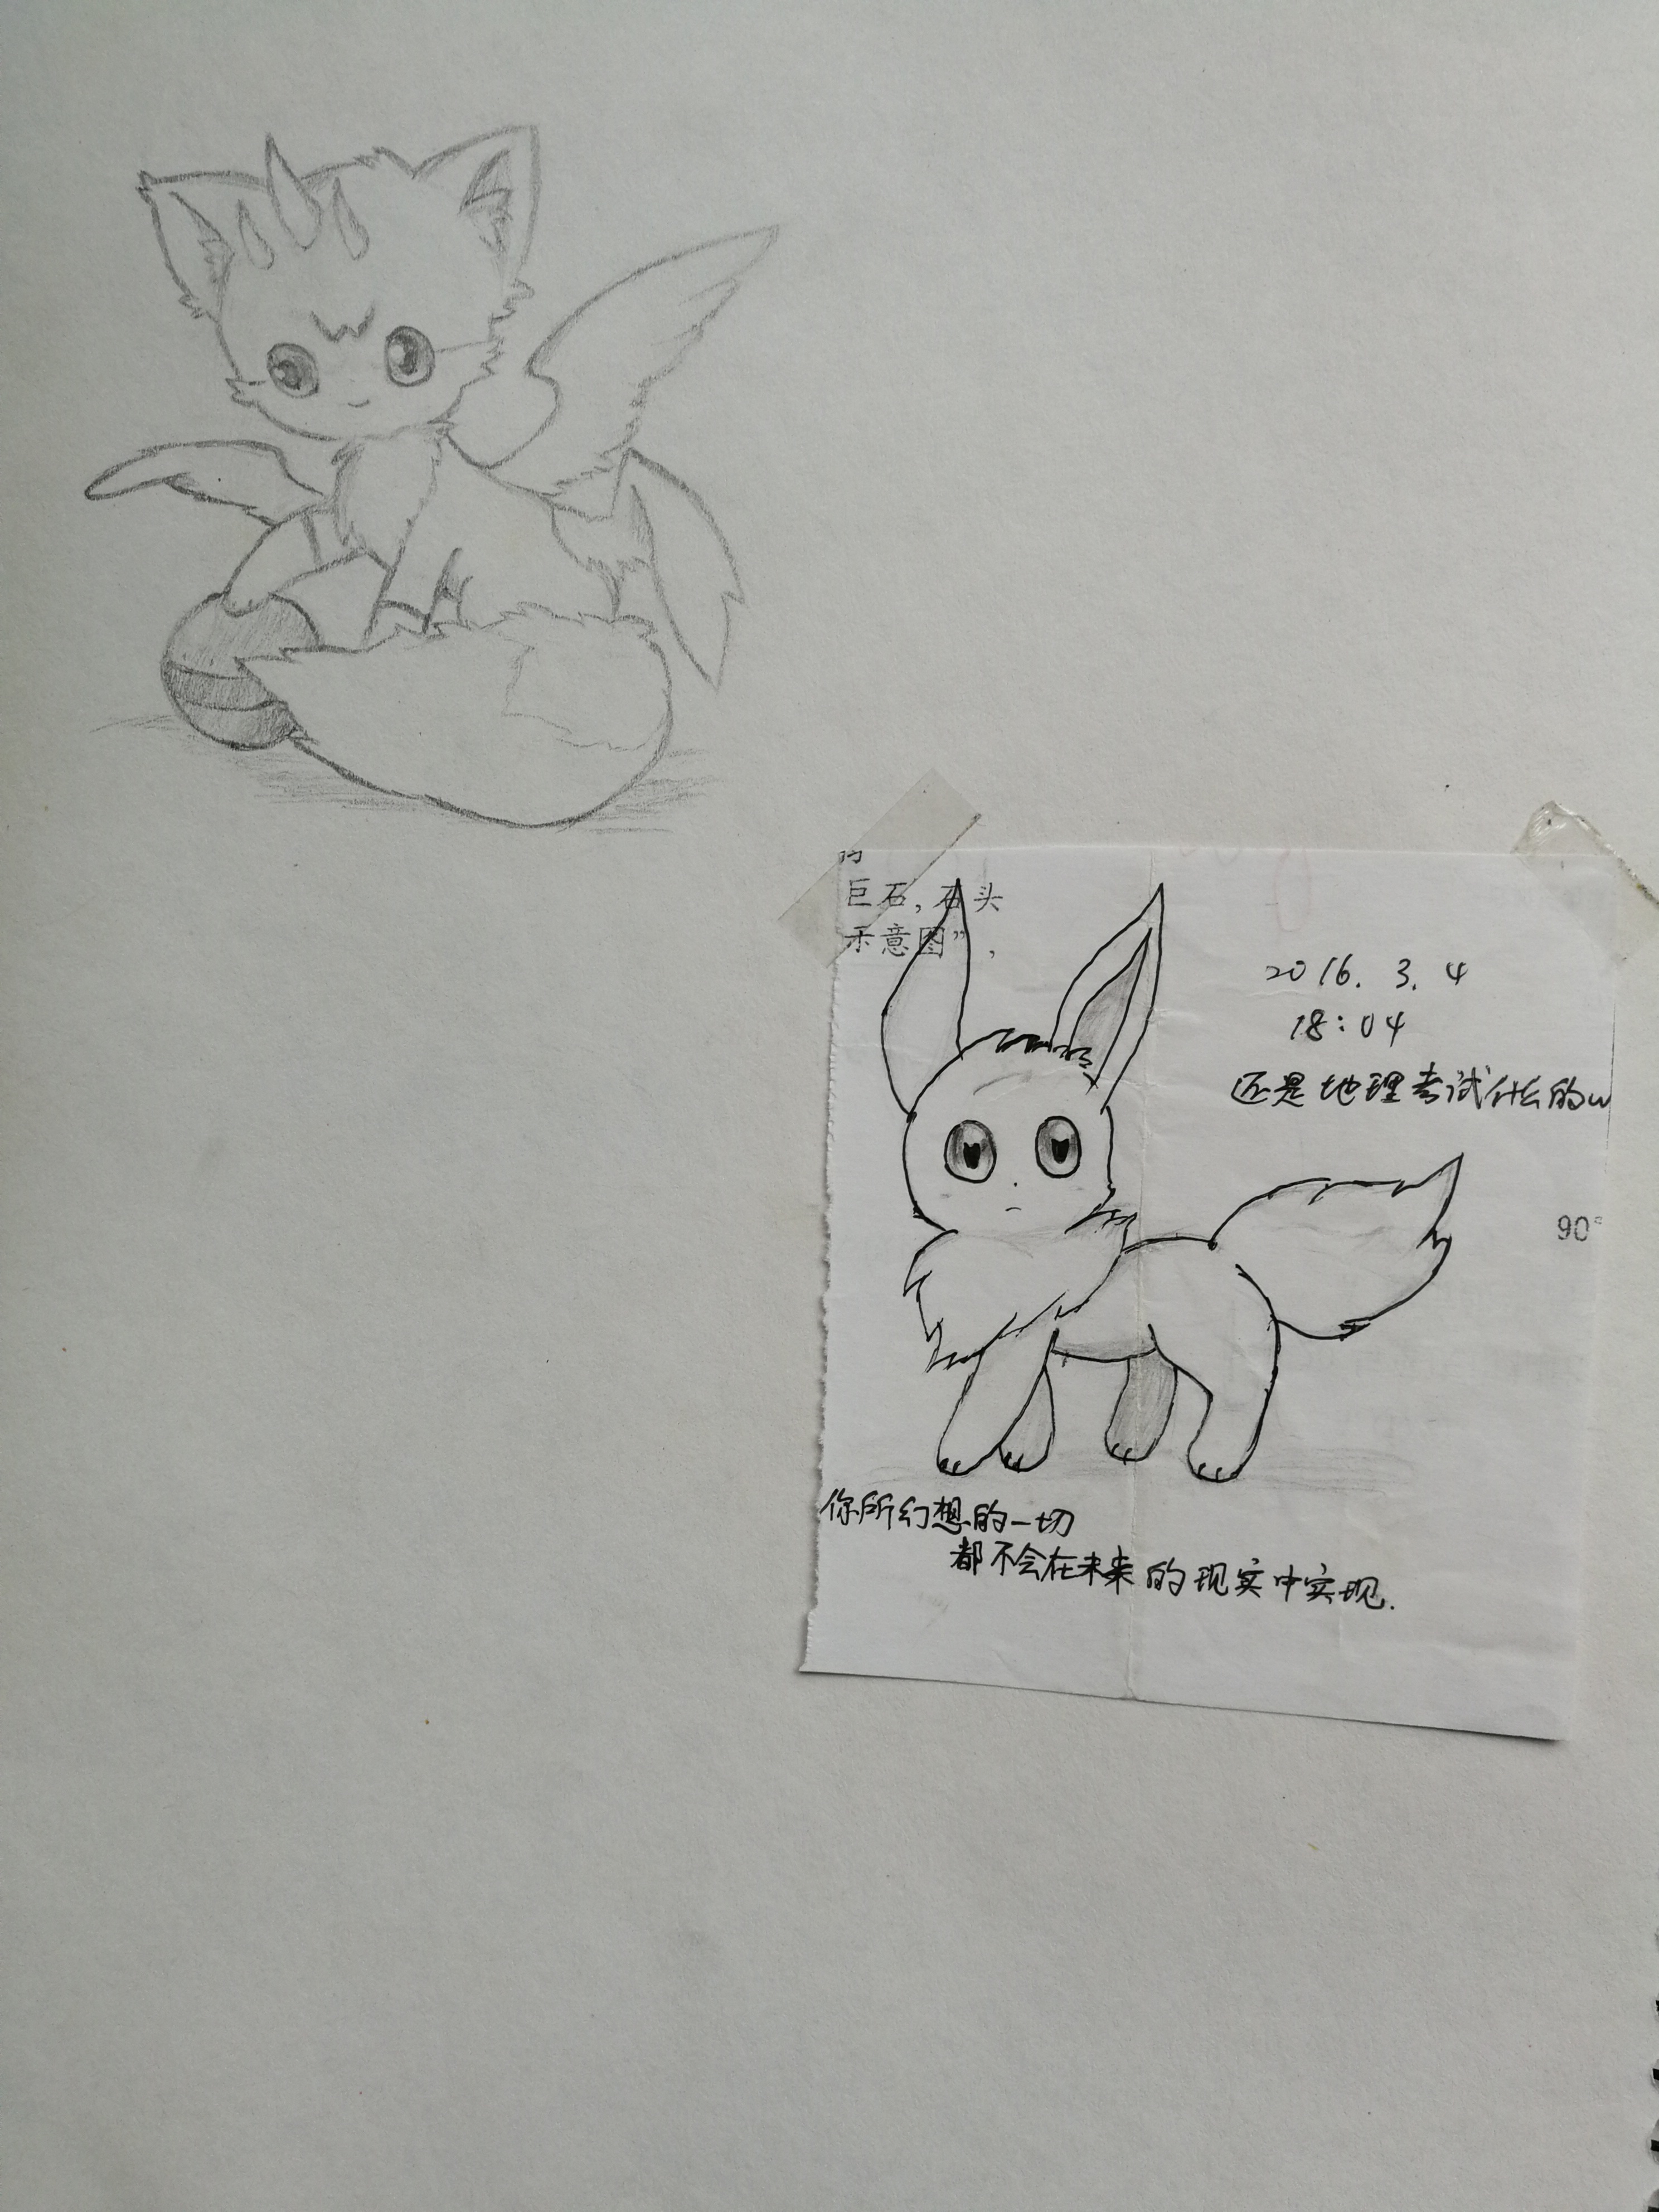 巨石，石头
示意图”，
2016. 3. 4
18:04
还是地理考试什么的w
90°
你所幻想的一切
都不会在未来的现实中实现.